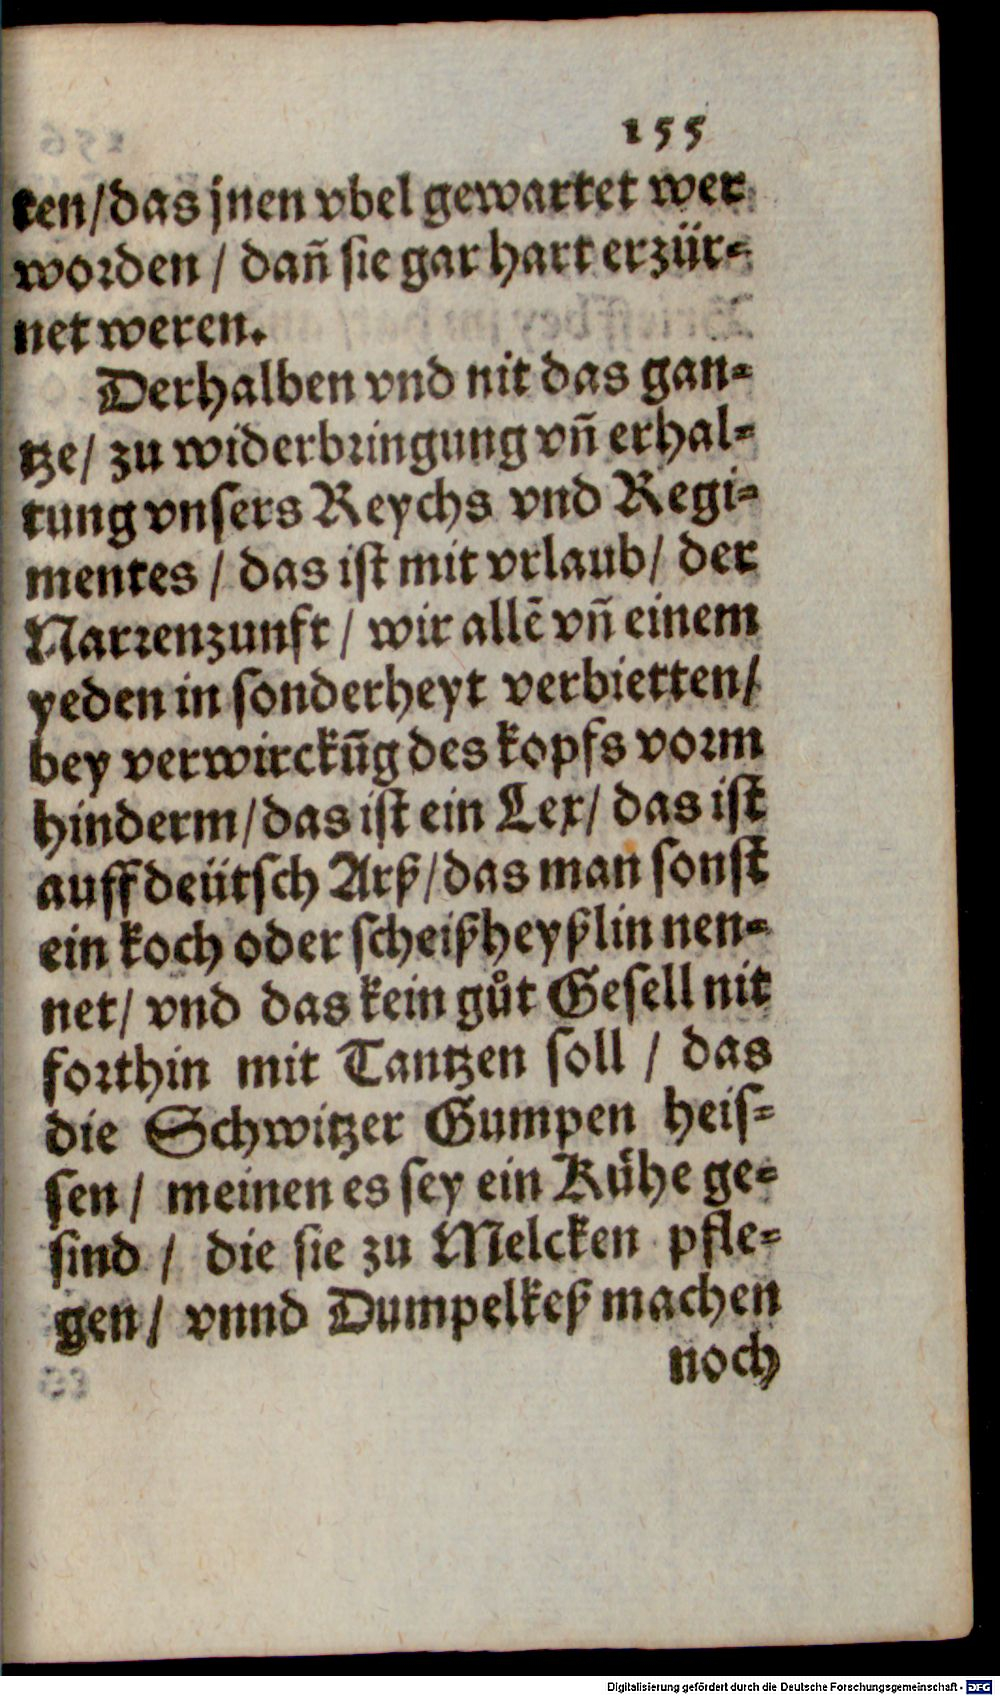 155
ken/das jnen vbel gewartet wer
worden / dañ sie gar hart erzür-
net weren.
Derhalben vnd nit das gan-
tze/ zu widerbringung vñ erhal-
tung vnsers Reychs vnd Regi-
mentes / das ist mit vrlaub/ der
Narrenzunft / wir allē vñ einem
yeden in sonderheyt verbietten/
bey verwirckūg des kopfs vorm
hinderm/das ist ein Lex/ das ist
auff deütsch Arß/das man sonst
ein koch oder scheißheyßlin nen-
net/ vnd das kein gůt Gesell nit
forthin mit Tantzen soll / das
die Schwitzer Gumpen heis-
sen / meinen es sey ein Kůhe ge-
sind / die sie zu Melcken pfle-
gen/ vnnd Dumpelkeß machen
noch
Digitalisierung gefördert durch die Deutsche Forschungsgemeinschaft - DFG